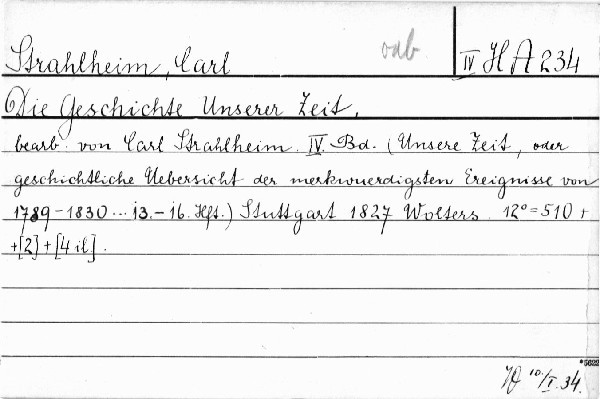 Strahlheim, Carl
odb
IV H A 234
Die Geschichte Unserer Zeit,
bearb. von Carl Strahlheim. IV. Bd. (Unsere Zeit, oder
geschichtliche Uebersicht der merkwuerdigsten Ereignisse von
1789-1830 ... 13.-16. Hft.) Stuttgart 1827 Wolters. 12°=510 +
+[2]+[4 il].
10./I. 34.